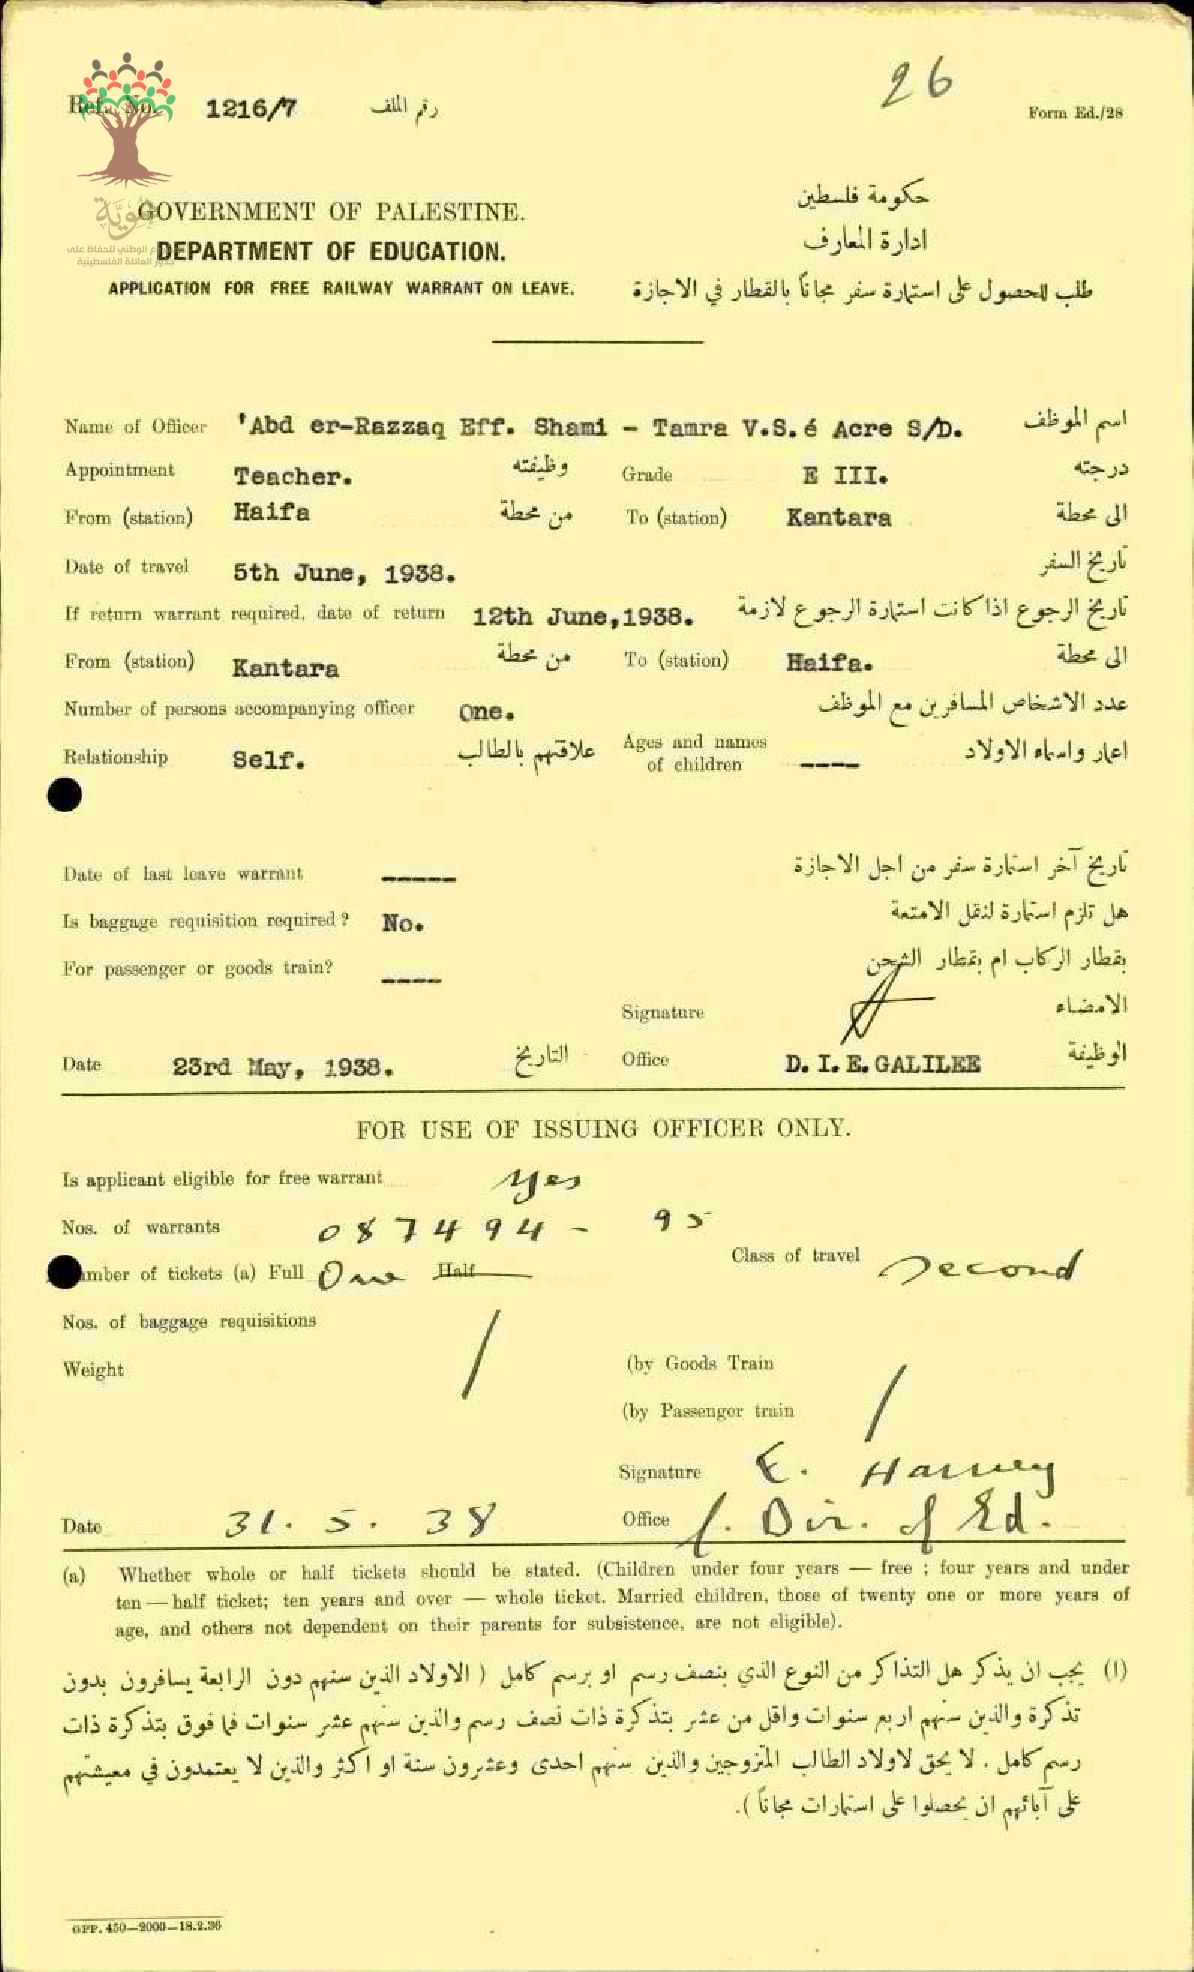 26
Ref. No. 1216/7 رقم الملف
Form Ed./28
هوية
GOVERNMENT OF PALESTINE.
حكومة فلسطين
DEPARTMENT OF EDUCATION.
ادارة المعارف
APPLICATION FOR FREE RAILWAY WARRANT ON LEAVE.
طلب للحصول على استمارة سفر مجاناً بالقطار في الاجازة
Name of Officer 'Abd er-Razzaq Eff. Shami - Tamra V.S.é Acre S/D. اسم الموظف
Appointment Teacher. وظيفته Grade E III. درجته
From (station) Haifa من محطة To (station) Kantara الى محطة
Date of travel 5th June, 1938. تاريخ السفر
If return warrant required, date of return 12th June,1938. تاريخ الرجوع اذا كانت استمارة الرجوع لازمة
From (station) Kantara من محطة To (station) Haifa. الى محطة
Number of persons accompanying officer One. عدد الاشخاص المسافرين مع الموظف
Relationship Self. علاقتهم بالطالب Ages and names of children ---- اعمار واسماء الاولاد
Date of last leave warrant ----- تاريخ آخر استمارة سفر من اجل الاجازة
Is baggage requisition required? No. هل تلزم استمارة لنقل الامتعة
For passenger or goods train? ---- بقطار الركاب ام بقطار الشحن
Signature الامضاء
Date 23rd May, 1938. التاريخ Office D. I. E. GALILEE الوظيفة
FOR USE OF ISSUING OFFICER ONLY.
Is applicant eligible for free warrant yes
Nos. of warrants 087494 - 95
Number of tickets (a) Full One Half Class of travel second
Nos. of baggage requisitions
Weight (by Goods Train
(by Passenger train
Signature E. Harvey
Date 31. 5. 38 Office f. Dir. of Ed.
(a) Whether whole or half tickets should be stated. (Children under four years — free ; four years and under
ten — half ticket; ten years and over — whole ticket. Married children, those of twenty one or more years of
age, and others not dependent on their parents for subsistence, are not eligible).
(١) يجب ان يذكر هل التذاكر من النوع الذي بنصف رسم او برسم كامل ( الاولاد الذين سنهم دون الرابعة يسافرون بدون
تذكرة والذين سنهم اربع سنوات واقل من عشر بتذكرة ذات نصف رسم والذين سنهم عشر سنوات فما فوق بتذكرة ذات
رسم كامل . لا يحق لاولاد الطالب المتزوجين والذين سنهم احدى وعشرون سنة او اكثر والذين لا يعتمدون في معيشتهم
على آبائهم ان يحصلوا على استمارات مجاناً ).
GPP. 450—2000—18.2.36